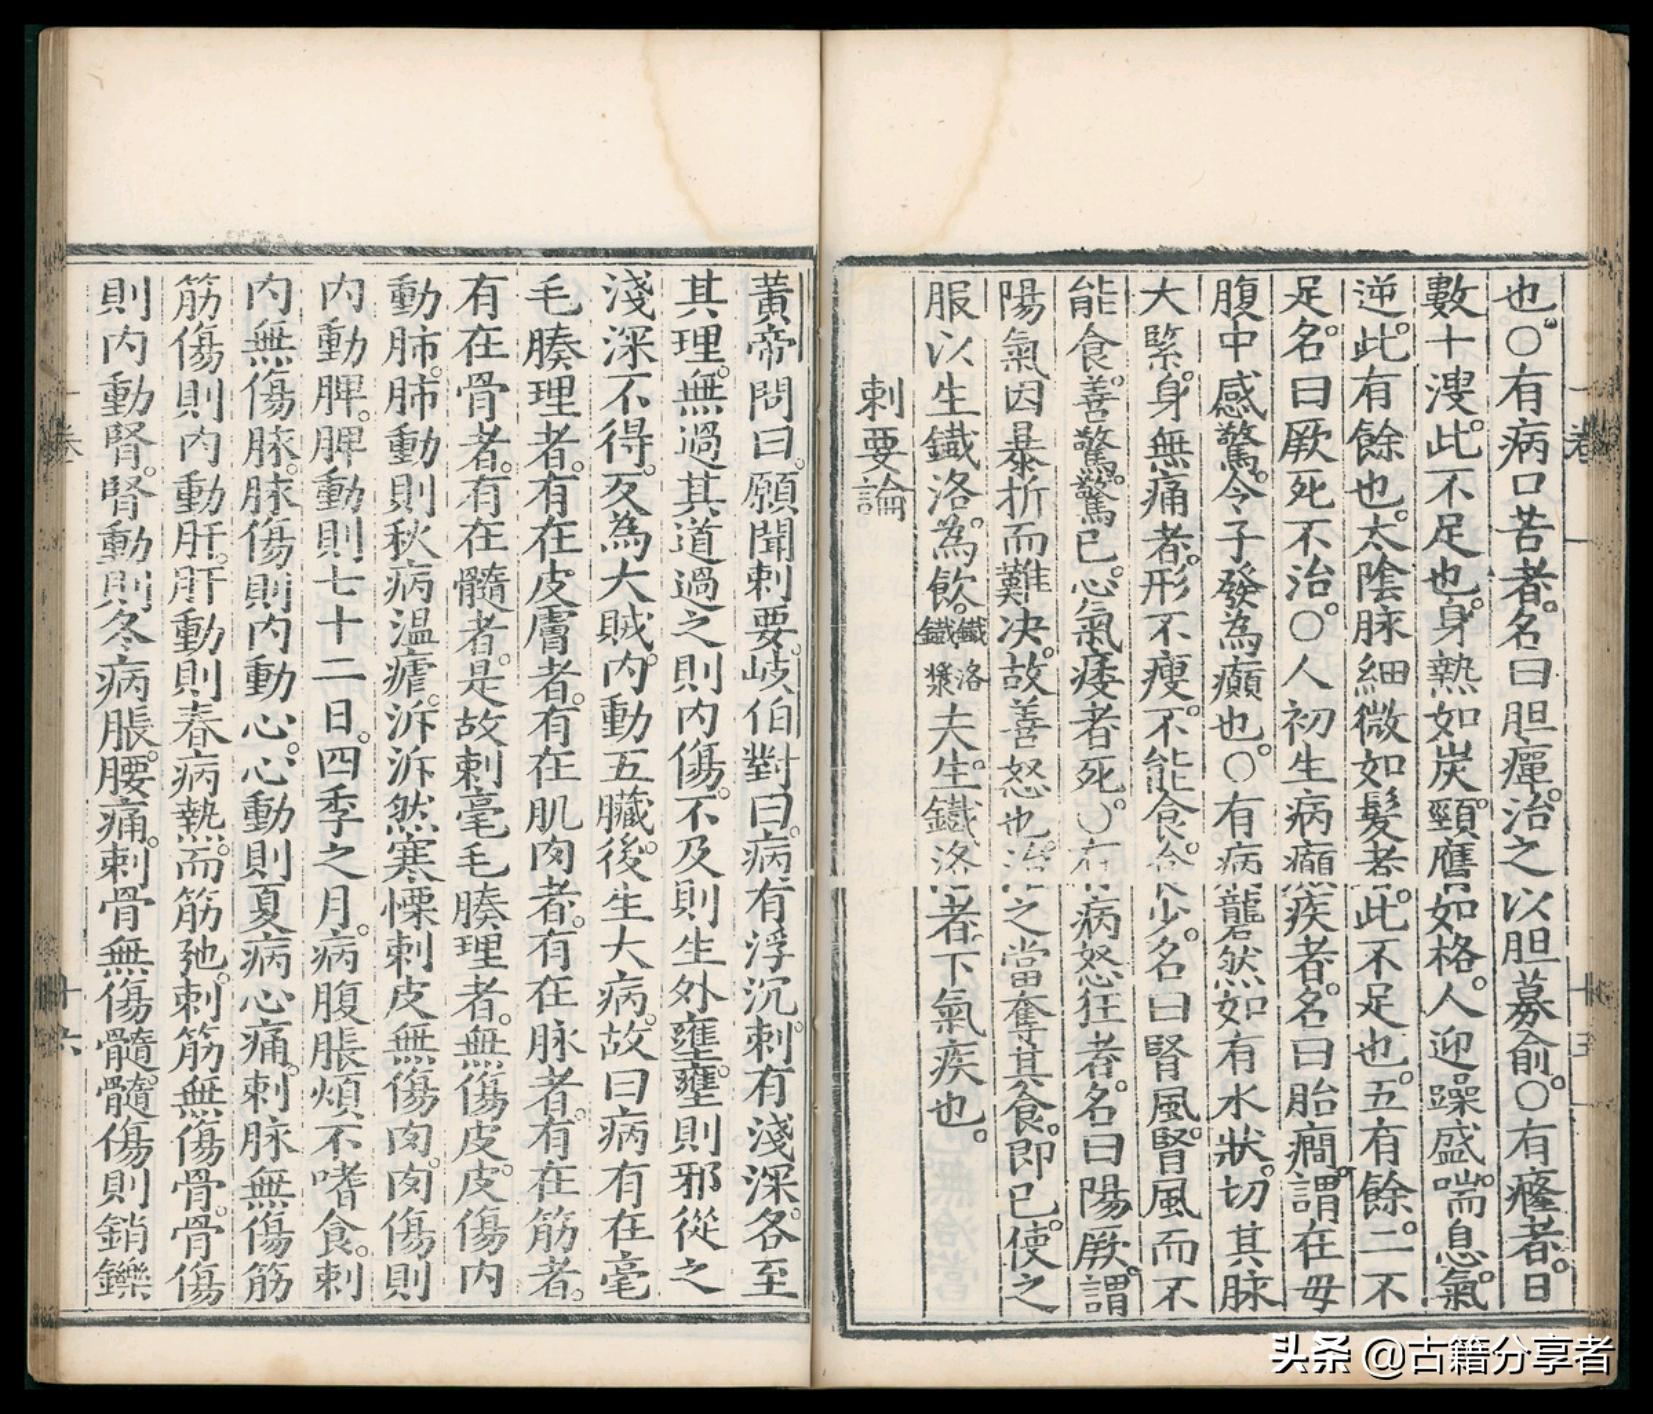 也○有病口苦者名曰胆癉治之以胆募俞○有癃者日
數十溲此不足也身熱如炭頸膺如格人迎躁盛喘息氣
逆此有餘也太陰脉細微如髮者此不足也五有餘二不
足名曰厥死不治○人初生病癲疾者名曰胎癇謂在母
腹中感驚令子發為癲也○有病龐然如有水狀切其脉
大緊身無痛者形不瘦不能食食少名曰腎風腎風而不
能食善驚驚已心氣痿者死○有病怒狂者名曰陽厥謂
陽氣因暴折而難决故善怒也治之當奪其食即已使之
服以生鐵洛為飲鐵洛鐵漿夫生鐵洛者下氣疾也
刺要論
黃帝問曰願聞刺要岐伯對曰病有浮沉刺有淺深各至
其理無過其道過之則内傷不及則生外壅壅則邪從之
淺深不得反為大賊内動五臟後生大病故曰病有在毫
毛腠理者有在皮膚者有在肌肉者有在脉者有在筋者
有在骨者有在髓者是故刺毫毛腠理者無傷皮皮傷内
動肺肺動則秋病温瘧泝泝然寒慄刺皮無傷肉肉傷則
内動脾脾動則七十二日四季之月病腹脹煩不嗜食刺
内無傷脉脉傷則内動心心動則夏病心痛刺脉無傷筋
筋傷則内動肝肝動則春病熱而筋弛刺筋無傷骨骨傷
則内動腎腎動則冬病脹腰痛刺骨無傷髓髓傷則銷鑠
一卷
十五
一卷
十六
头条 @古籍分享者